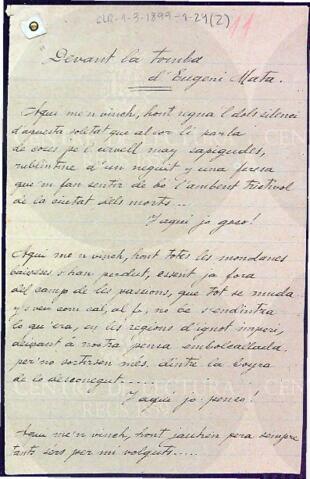 CLR-1-3-1899-1-21(2)
11
Devant la tomba
d'Eugeni Mata.
Aqui me'n vinch, hont regna l dols silenci
d'aquesta soletat que al cor li parla
de coses pe'l cervell may sapigudes,
rublintme d'un neguit y una
que'm fan sentir de bo l'ambent tristivol
de la ciutat dels morts...
Y aqui jo goso!
Aqui me'n vinch, hont totes les mondanes
baixeses s'han perdut, essent ja fora
del camp de les passions, que tot se muda
y's veu com cal, al fi, no se s'endintra
lo qu'era, en les regions d'ignot imperi,
deixant á nostra pensa embolcallada
per'no sortirsen més, dintre la boyra
de lo desconegut......
Y aqui jo penso!
Aqui me'n vinch, hont jauhen pera sempre
tants sers per mi volguts.....
CENTRE DE LECTURA
REUS